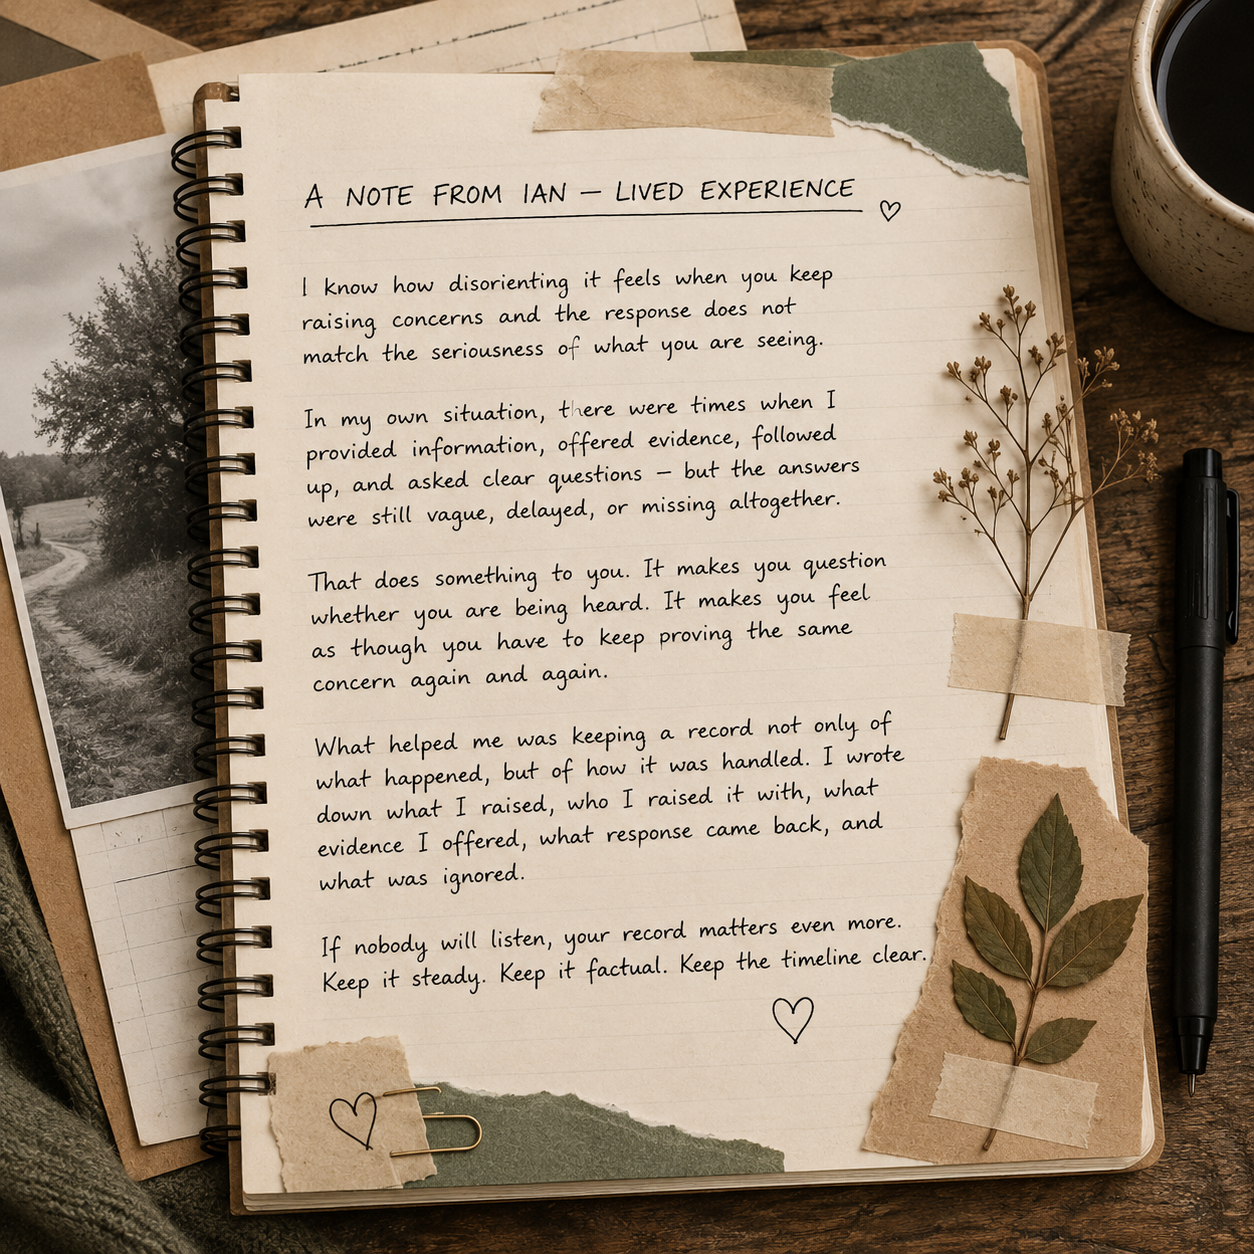 A NOTE FROM IAN – LIVED EXPERIENCE
I know how disorienting it feels when you keep
raising concerns and the response does not
match the seriousness of what you are seeing.
In my own situation, there were times when I
provided information, offered evidence, followed
up, and asked clear questions – but the answers
were still vague, delayed, or missing altogether.
That does something to you. It makes you question
whether you are being heard. It makes you feel
as though you have to keep proving the same
concern again and again.
What helped me was keeping a record not only of
what happened, but of how it was handled. I wrote
down what I raised, who I raised it with, what
evidence I offered, what response came back, and
what was ignored.
If nobody will listen, your record matters even more.
Keep it steady. Keep it factual. Keep the timeline clear.